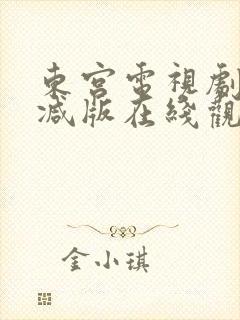 東宮電視劇
減版在綫觀
金小琪